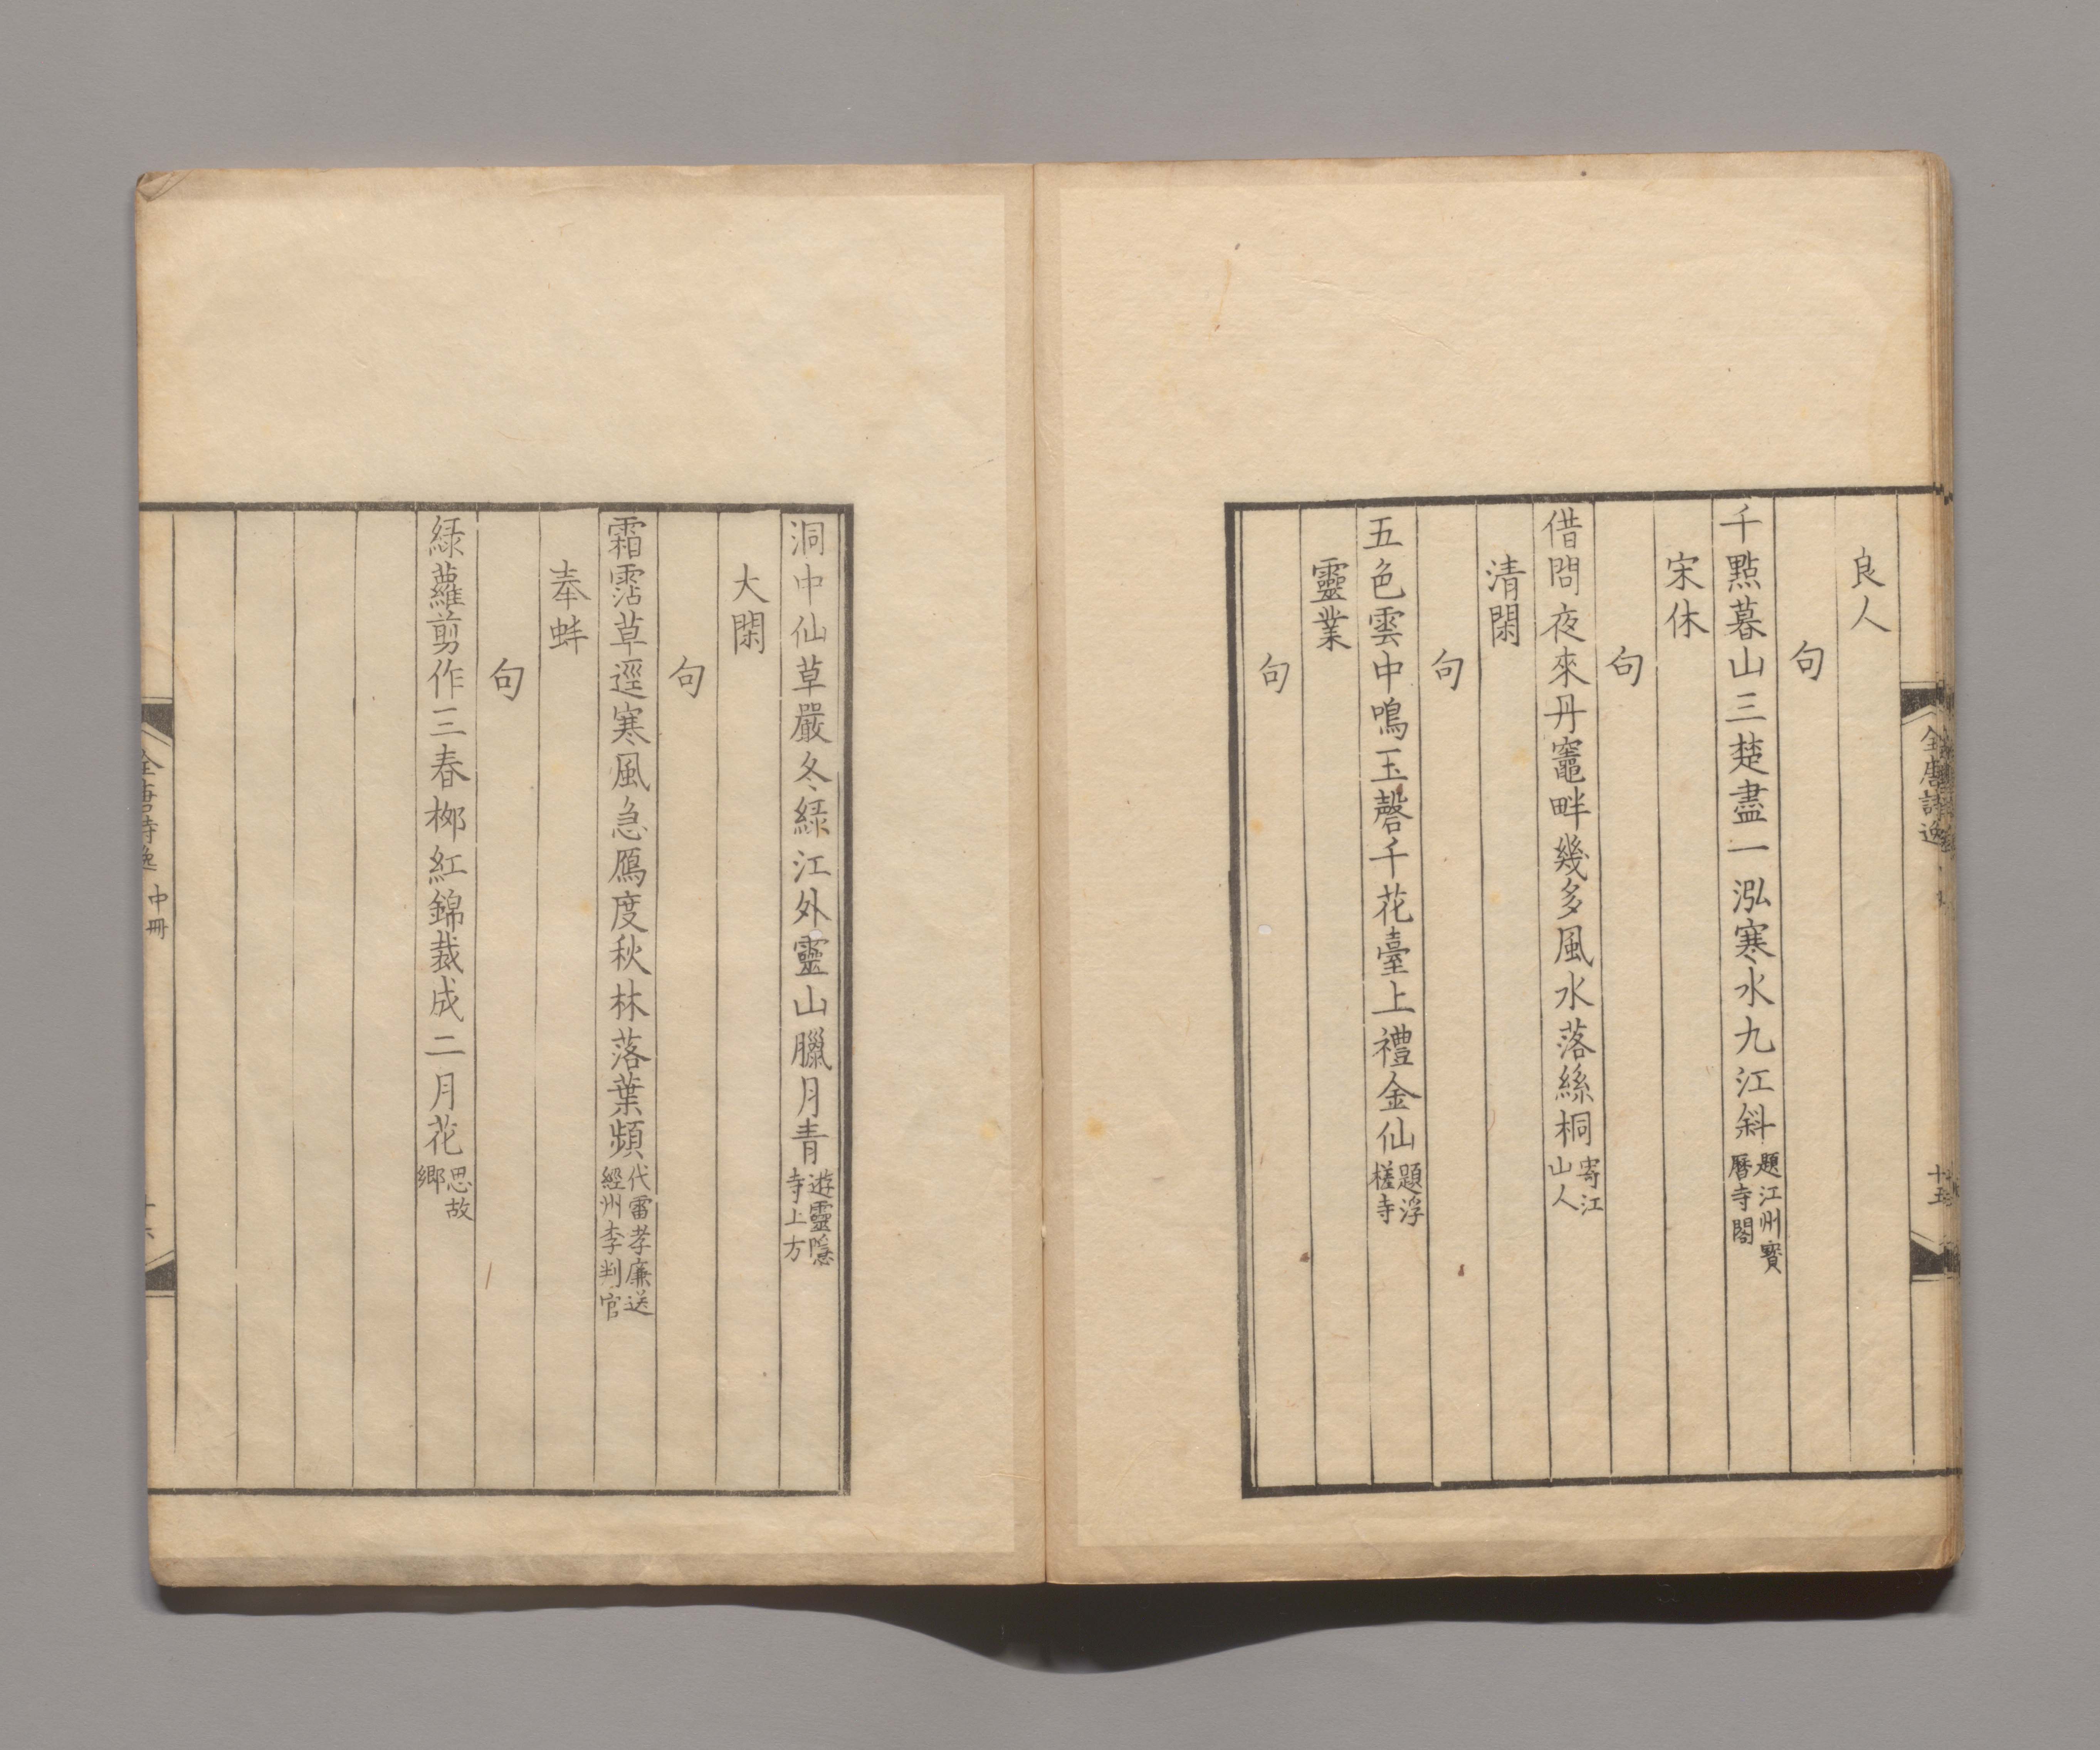 良人
句
千點暮山三楚盡一泓寒水九江斜
題江州寶
曆寺閣
宋休
句
借問夜來丹竈畔幾多風水落絲桐
寄江
山人
清閑
句
五色雲中鳴玉磬千花臺上禮金仙
題浮
槎寺
靈業
句
全唐詩逸
十五
洞中仙草嚴冬綠江外靈山臘月青
遊靈隱
寺上方
大閑
句
霜霑草逕寒風急鴈度秋林落葉頻
代雷孝廉送
經州李判官
奉蚌
句
綠蘿剪作三春栁紅錦裁成二月花
思故
鄉
全唐詩逸
中冊